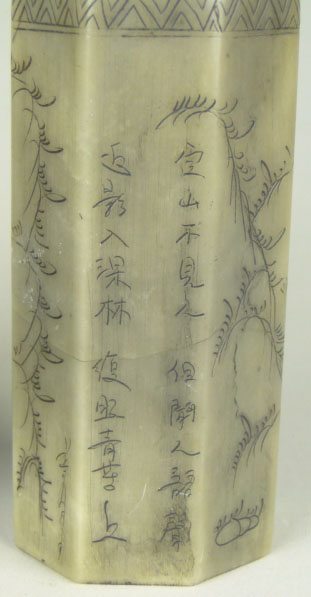 空山不見人 但聞人語響
返影入深林 復照青苔上